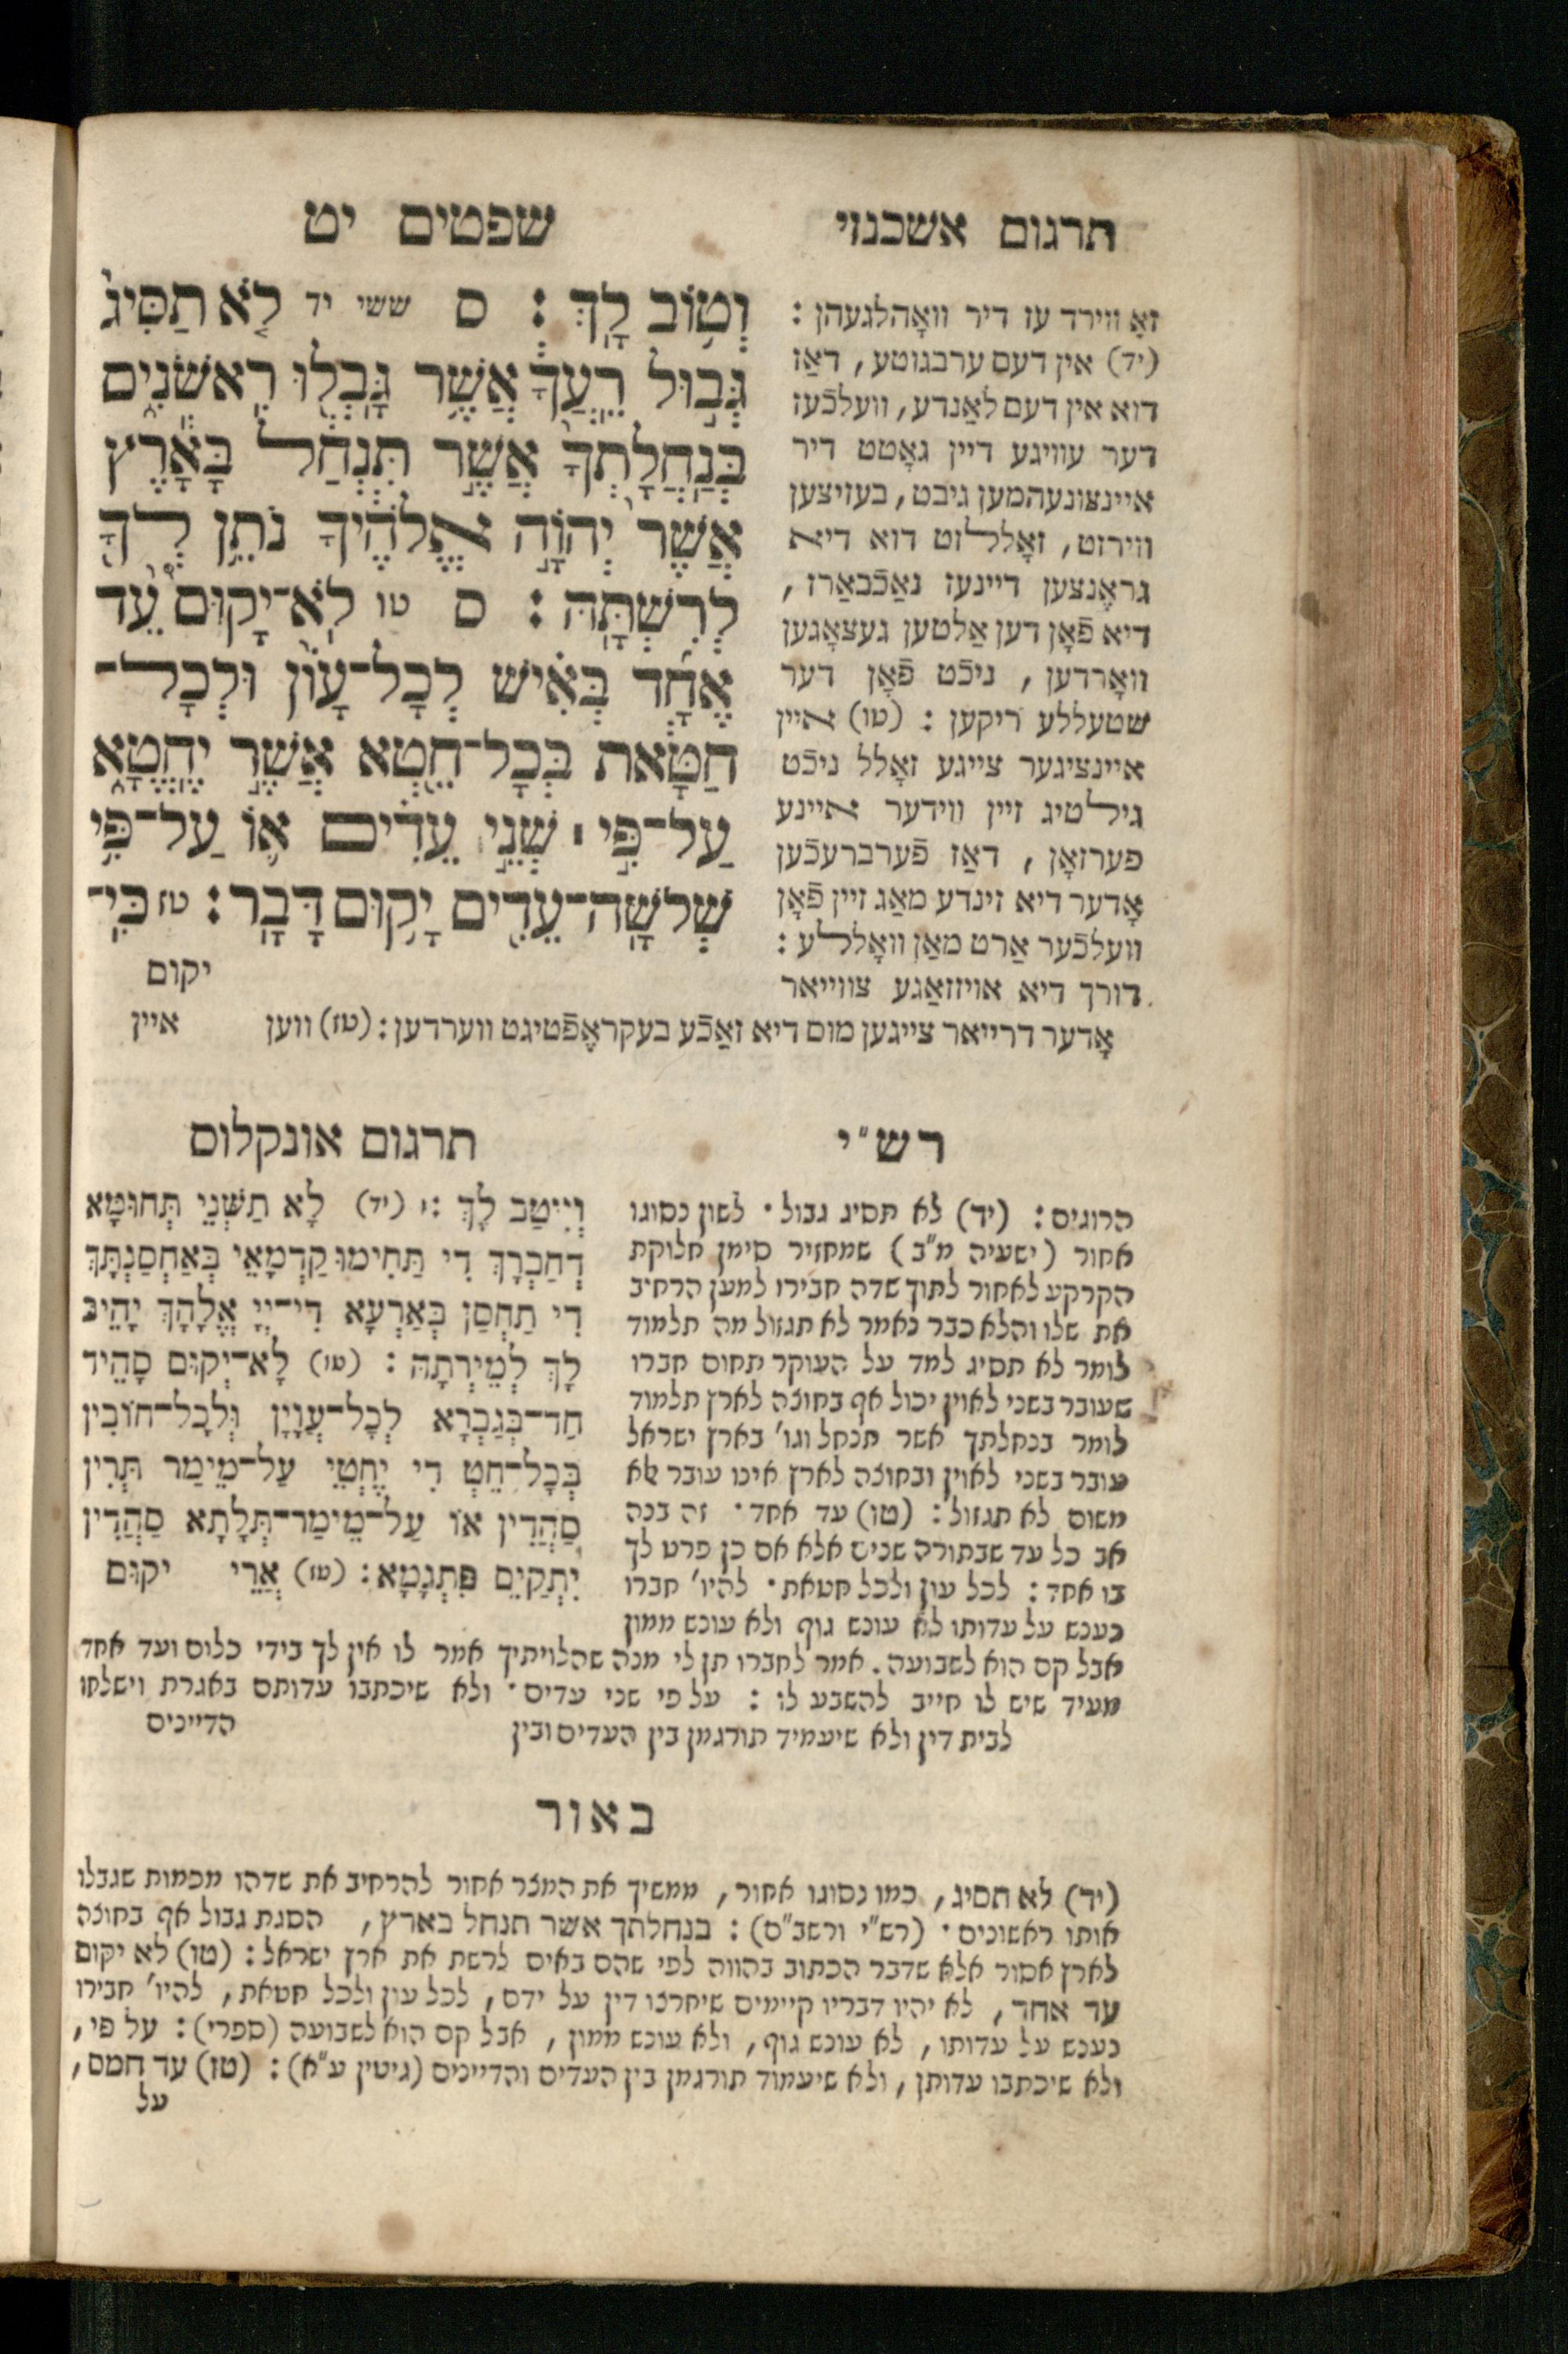 תרגום אשכנזי
שפטים יט
וְט֥וֹב לָֽךְ׃ ס ששי יד לֹ֤א תַסִּיג֙
גְּב֣וּל רֵֽעֲךָ֔ אֲשֶׁ֥ר גָּֽבְל֖וּ רִֽאשֹׁנִ֑ים
בְּנַֽחֲלָֽתְךָ֙ אֲשֶׁ֣ר תִּנְחַ֔ל בָּאָ֕רֶץ
אֲשֶׁר֙ יְהוָֹ֣ה אֱלֹהֶ֔יךָ נֹתֵ֥ן לְךָ֖
לְרִשְׁתָּֽהּ׃ ס טו לֹֽא־יָקוּם֩ עֵ֨ד
אֶחָ֜ד בְּאִ֗ישׁ לְכָל־עָוֹן֙ וּלְכָל־
חַטָּ֔את בְּכָל־חֵ֖טְא אֲשֶׁ֣ר יֶֽחֱטָ֑א
עַל־פִּ֣י ׀ שְׁנֵ֣י עֵדִ֗ים א֛וֹ עַל־פִּ֥י
שְׁלֹשָֽׁה־עֵדִ֖ים יָק֥וּם דָּבָֽר׃ טז כִּֽי־
יקום
זאָ ווירד עז דיר וואָהלגעהן :
(יד) אין דעם ערבגוטע, דאַז
דוא אין דעם לאַנדע, וועלכֿעז
דער עוויגע דיין גאָטט דיר
איינצונעהמען גיבט, בעזיצען
ווירזט, זאָללזט דוא דיא
גראֶנצען דיינעז נאַכֿבאַרז,
דיא פֿאָן דען אַלטען געצאָגען
וואָרדען, ניכֿט פֿאָן דער
שטעללע ריקען : (טו) איין
איינציגער צייגע זאָלל ניכֿט
גילטיג זיין ווידער איינע
פערזאָן, דאַז פֿערברעכֿען
אָדער דיא זינדע מאַג זיין פֿאָן
וועלכֿער אַרט מאַן וואָללע :
דורך דיא אויזזאַגע צווייאר
אָדער דרייאר צייגען מוס דיא זאַכֿע בעקראֶפֿטיגט ווערדען : (טז) ווען איין
רש"י
הרוגים : (יד) לא תסיג גבול. לשון נסוגו
אחור (ישעיה מ"ב) שמחזיר סימן חלוקת
הקרקע לאחור לתוך שדה חבירו למען הרחיב
את שלו והלא כבר נאמר לא תגזול מה תלמוד
לומר לא תסיג למד על העוקר תחום חברו
שעובר בשני לאוין יכול אף בחוצה לארץ תלמוד
לומר בנחלתך אשר תנחל וגו' בארץ ישראל
עובר בשני לאוין ובחוצה לארץ אינו עובר אלא
משום לא תגזול : (טו) עד אחד. זה בנה
אב כל עד שבתורה שנים אלא אם כן פרט לך
בו אחד : לכל עון ולכל חטאת. להיו' חברו
נענש על עדותו לא עונש גוף ולא עונש ממון
אבל קם הוא לשבועה. אמר לחברו תן לי מנה שהלויתיך אמר לו אין לך בידי כלום ועד אחד
מעיד שיש לו חייב להשבע לו : על פי שני עדים. ולא שיכתבו עדותם באגרת וישלחו
לבית דין ולא שיעמיד תורגמן בין העדים ובין הדיינים
תרגום אונקלוס
וְיִיטַב לָךְ : (יד) לָא תַשְׁנֵי תְּחוּמָא
דְחַבְרָךְ דִי תַּחִימוּ קַדְמָאֵי בְּאַחְסַנְתָּךְ
דִי תַחְסַן בְּאַרְעָא דִי־יְיָ אֱלָהָךְ יָהֵיב
לָךְ לְמֵירְתַהּ : (טו) לָא־יְקוּם סָהֵיד
חַד־בְּגַבְרָא לְכָל־עֲוָיָן וּלְכָל־חוֹבִין
בְּכָל־חֵטְ דִי יֶחְטֵי עַל־מֵימַר תְּרֵין
סַהֲדִין אוֹ עַל־מֵימַר־תְּלָתָא סַהֲדִין
יִתְקַיֵם פִּתְגָמָא : (טז) אֲרֵי יקום
באור
(יד) לא תסיג, כמו נסוגו אחור, ממשיך את המצר אחור להרחיב את שדהו מכמות שגבלו
אותו ראשונים. (רש"י ורשב"ם) : בנחלתך אשר תנחל בארץ, הסגת גבול אף בחוצה
לארץ אסור אלא שדבר הכתוב בהווה לפי שהם באים לרשת את ארץ ישראל : (טו) לא יקום
עד אחד, לא יהיו דבריו קיימים שיחרצו דין על ידם, לכל עון ולכל חטאת, להיו' חבירו
נענש על עדותו, לא עונש גוף, ולא עונש ממון, אבל קם הוא לשבועה (ספרי) : על פי,
ולא שיכתבו עדותן, ולא שיעמוד תורגמן בין העדים והדיינים (גיטין ע"א) : (טז) עד חמס,
על